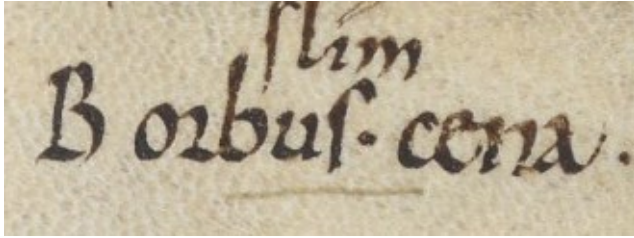 slim
B orbus. cena.